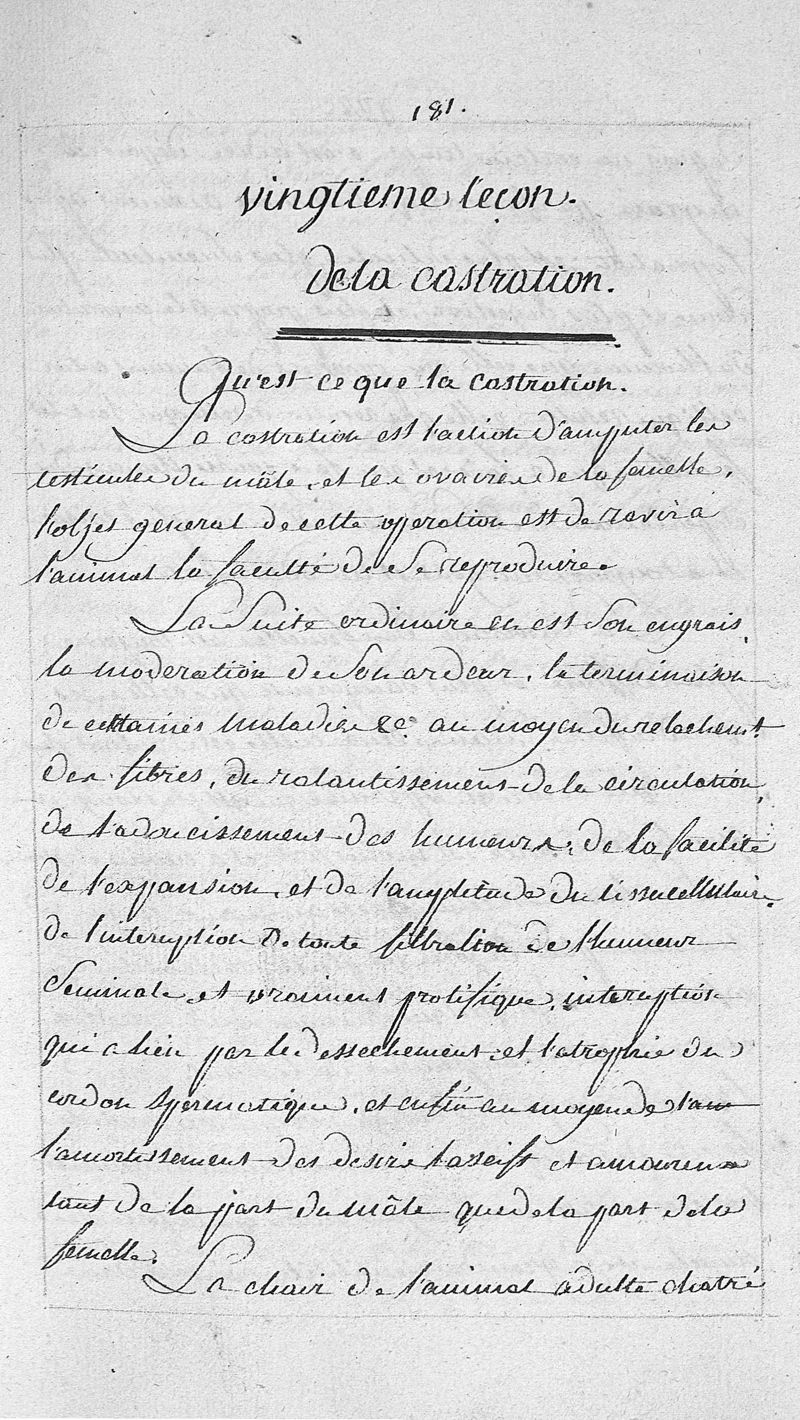 181.
vingtieme leçon.
de la castration.
Qu'est ce que la castration.
La castration est l'action d'amputer les
testicules du mâle, et les ovaires de la femelle,
l'objet general de cette operation est de ravir à
l'animal la faculté de se reproduire.
La suite ordinaire en est son engrais,
la moderation de son ardeur, la terminaison
de certaines maladies &c. au moyen du relachemt.
des fibres, du ralantissement de la circulation,
de l'adoucissement des humeurs, de la facilité
de l'expansion, et de l'amplitude du tissu cellulaire,
de l'interuption de toute filtration de l'humeur
seminale, et vraiment prolifique, interuption
qui a lieu par le dessechement, et l'atrophie du
cordon spermatique, et enfin au moyen de l'am
l'amortissement des desirs lascifs et amoureux
tant de la part du mâle que de la part de la
femelle.
La chair de l'animal adulte chatré